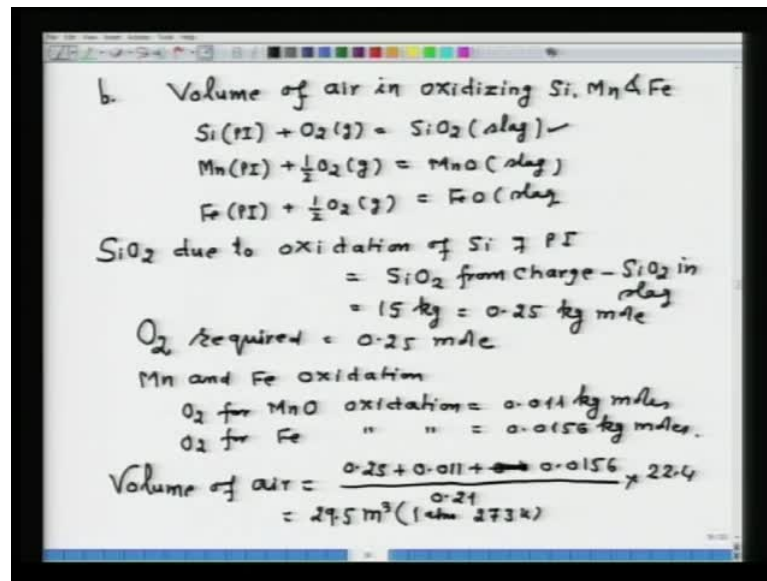 b. Volume of air in oxidizing Si, Mn & Fe
Si(PI) + O2(g) = SiO2(slag)
Mn(PI) + 1/2 O2(g) = MnO(slag)
Fe(PI) + 1/2 O2(g) = FeO(slag
SiO2 due to oxidation of Si of PI
= SiO2 from charge - SiO2 in slag
= 15 kg = 0.25 kg mole
O2 required = 0.25 mole
Mn and Fe oxidation
O2 for MnO oxidation = 0.011 kg moles
O2 for Fe " " = 0.0156 kg moles.
Volume of air = (0.25 + 0.011 + 0.0156)/0.21 × 22.4
= 29.5 m³ (1 atm 273 K)